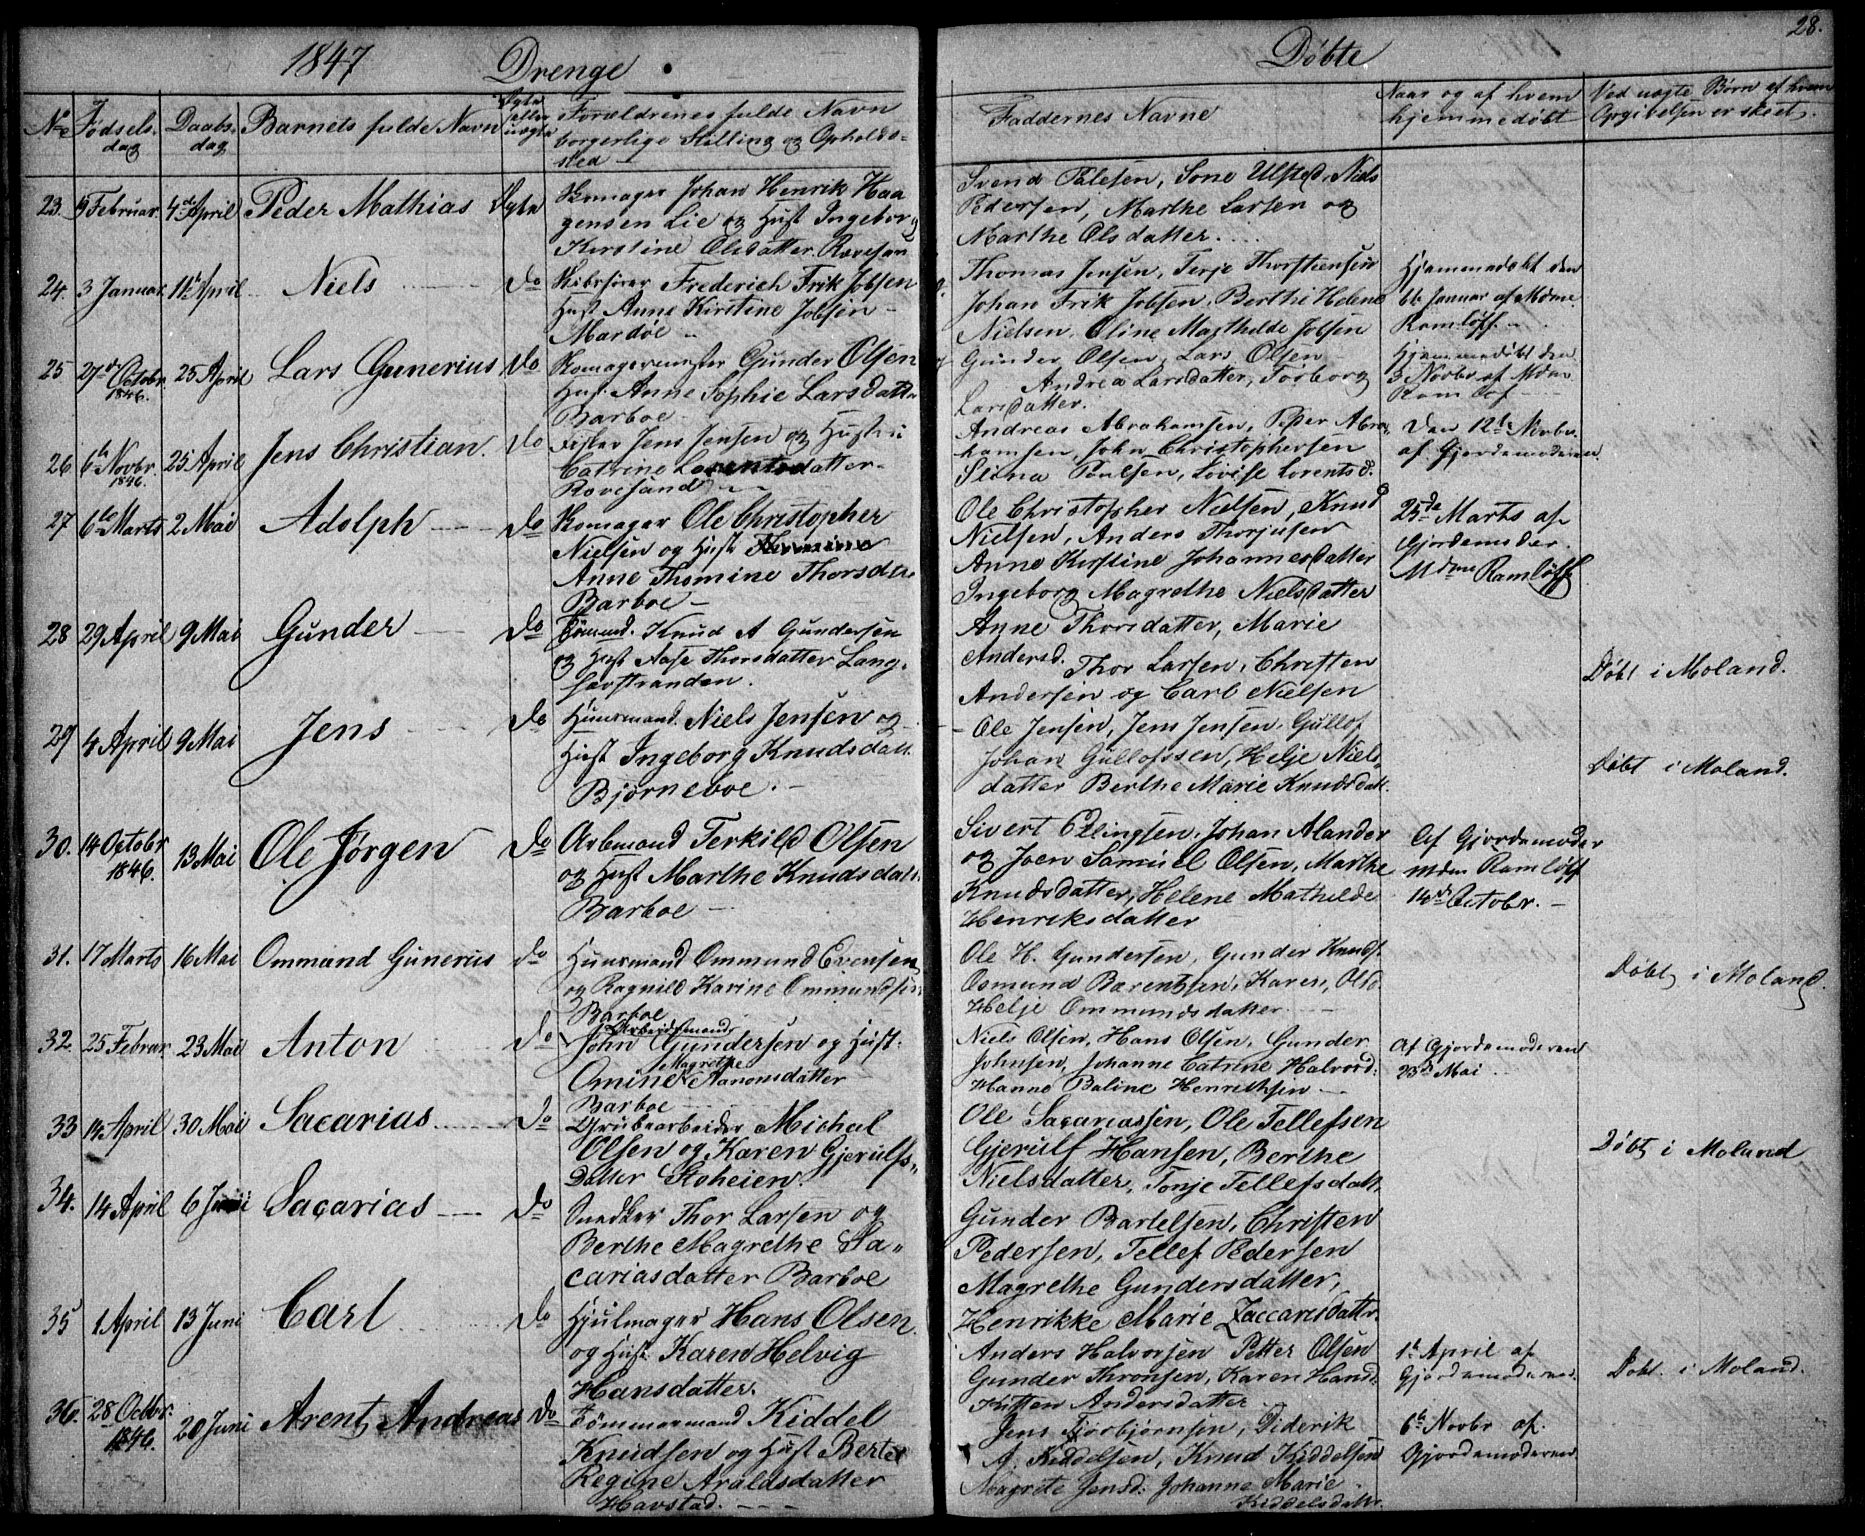 1847 Drenge
Døbte 28.
No Fødsels- dag Daabs- dag Barnets fulde Navn Ægte eller uægte Forældrenes fulde Navn borgerlige Stilling og Opholds- sted
Faddernes Navne Naar og af hvem hjemmedøbt Ved uægte Børn af hvem Opgivelsen er skeet.
23. 9 Februar 4de April Peder Mathias Ægte Skomager Johan Henrik Haa
gensen Lie og Hust Ingeborg
Kirstine Olsdatter
Svend Palesen, Sone Ulsted, Niels
Pedersen, Marthe Larsen og
Marthe Olsdatter.
24. 3 Januar 11te April Niels do Skibsfører Frederich Frik Jobsen
Hust Anne Kirstine Jobsen
Mardøe
Thomas Jensen, Terje Thorstensen
Johan Frik Jobsen, Berthe Helene
Nielsen, Oline Mathilde Jobsen
Hjemmedøbt den
6te Januar af Mdme
Ramløff.
25 27de Octobr 1846. 25 April Lars Gunerius do Skomagermester Gunder Olsen
Hust Anne Sophie Larsdattr
Barboe
Gunder Olsen, Lars Olsen
Andrea Larsdatter, Torborg
Larsdatter.
Hjemmedøbt den
3 Novbr af Mdme
26 6te Novbr. 1846. 25 April Jens Christian. do Jens Jensen og Hustru
Catrine Lorentsdatter
Ravesand
Andreas Abrahamsen, Peder Abra
hamsen, John Christophersen
Stena Poulsen, Lovise Lorentsd.
Den 12te Novbr.
af Gjordemoderen.
27 6te Marts 2 Mai Adolph do Skomager Ole Christopher
Nielsen og Hust
Anne Thomine Thorsdtr.
Barboe
Ole Christopher Nielsen, Knud
Nielsen, Anders Thorjusen
Anne Kirstine Johannesdatter
Ingeborg Magrethe Nielsdatter
25de Marts af
Gjordemoder
Mdme Ramløff
28 29 April 9 Mai Gunder do Knud A Gundersen
og Hust Aase Thorsdatter Lang-
sævstranden.
Anne Thorsdatter, Marie
Andersd. Thor Larsen, Christen
Andersen og Carl Nielsen
Døbt i Moland.
29 4 April 9 Mai Jens do Huusmand Niels Jensen og
Hust Ingeborg Knudsdatt.
Bjørneboe.
Ole Jensen, Jens Jensen, Gullof
Johan Gullofssen, Helje Niels-
datter Berthe Marie Knudsdatt.
Døbt i Moland.
30. 14 Octobr 1846. 13 Mai Ole Jørgen do Arbmand Terkild Olsen
og Hust Marthe Knudsdatt.
Barboe
Sivert Ellingsen, Johan Alander
og Joen Samuel Olsen, Marthe
Knudsdatter, Helene Mathilde
Henriksdatter
Af Gjordemoder
mdm Ramløff
14de Octobr.
31. 17 Marts 16 Mai Ommund Gunerius do Huusmand Ommund Evensen
og Ragnild Karine Ommundsen
Barboe
Ole H. Gundersen, Gunder Knuds.
Osmund Barentsen, Karen Olsd.
Helje Ommundsdatter
Døbt i Moland.
32. 25 Februar 23 Mai Anton do Arbeidsmand
John Gundersen og Hust.
Omine Magrethe Aanonsdatter
Barboe
Niels Olsen, Hans Olsen, Gunder
Johnsen, Johanne Catrine Halvord.
Hanne Baline Henrethsen
Af Gjordemoderen
23de Mai
33 14 April 30 Mai Sacarias do Grubearbeider Michal
Olsen og Karen Gjerulfs-
datter Stoheien
Ole Sacariassen, Ole Tellefsen
Gjerulf Hansen, Berthe
Nielsdatter, Tonje Tellefsdatt.
Døbt i Moland
34. 14 April 6 Juni Sacarias do Snedker Thor Larsen og
Berthe Magrethe Sa-
cariasdatter Barboe
Gunder Bartelsen, Christen
Pedersen, Tellef Pedersen
Magrethe Gundersdatter,
Henrikke Marie Zaccarisdatter.
35 1 April 13 Juni Carl do Hjulmager Hans Olsen
og Hust Karen Helvig
Hansdatter.
Anders Halvorsen Petter Olsen
Gunder Thronsen, Karen Hansd.
Andersdatter
1te April af
Gjordemoderen
Døbt i Moland.
36. 28 Octbr. 1846. 20 Juni Arent Andreas do Tømmermand Kiddel
Knudsen og Hust Bertel
Regine Araldsdatter
Havstad.
Jens Torbjørnsen, Diderik
A. Kiddelsen, Knud Kiddelsen
Magrete Jensd. Johanne Marie
Kiddelsdattr.
6te Novbr af
Gjordemoderen